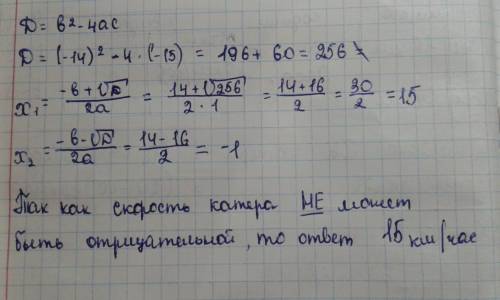 D = b² - 4ac
D = (-14)² - 4 · (-15) = 196 + 60 = 256
x₁ = (-b + √D)/2a = (14 + √256)/(2 · 1) = (14 + 16)/2 = 30/2 = 15
x₂ = (-b - √D)/2a = (14 - 16)/2 = -1
Так как скорость катера НЕ может
быть отрицательной, то ответ 15 км/час